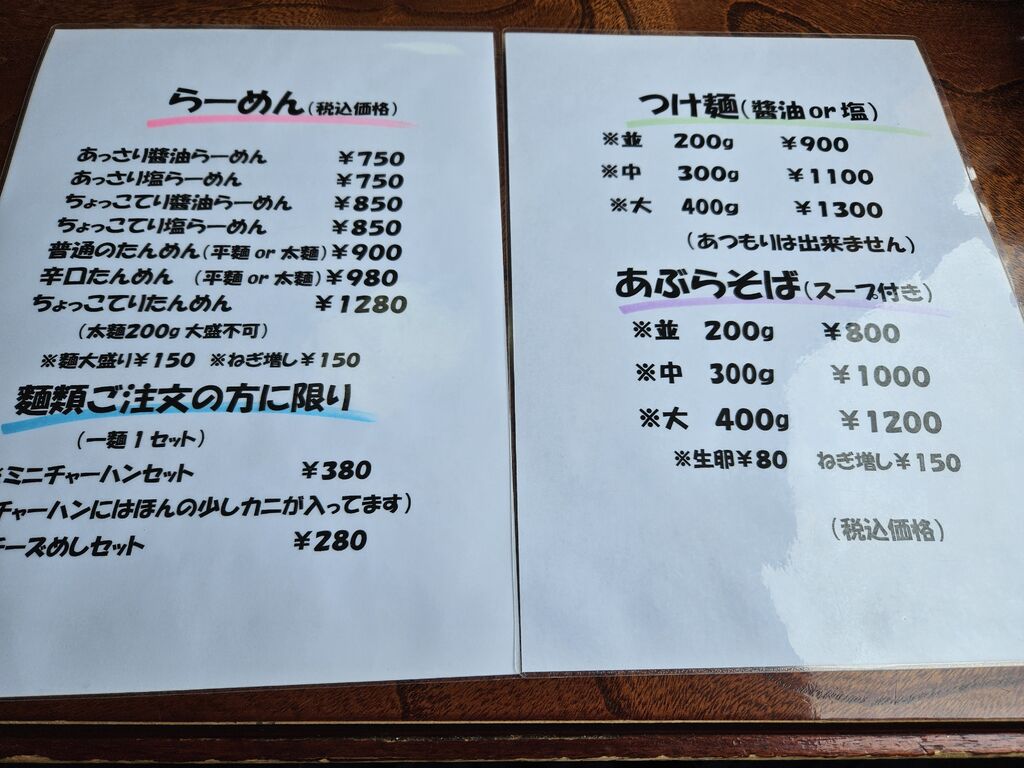 らーめん(税込価格)
あっさり醬油らーめん ¥750
あっさり塩らーめん ¥750
ちょっこてり醬油らーめん ¥850
ちょっこてり塩らーめん ¥850
普通のたんめん(平麺 or 太麺)¥900
辛口たんめん (平麺 or 太麺)¥980
ちょっこてりたんめん ¥1280
(太麺200g 大盛不可)
※麺大盛り¥150 ※ねぎ増し¥150
麺類ご注文の方に限り
(一麺1セット)
※ミニチャーハンセット ¥380
チャーハンにはほんの少しカニが入ってます)
チーズめしセット ¥280
つけ麺(醬油 or 塩)
※並 200g ¥900
※中 300g ¥1100
※大 400g ¥1300
(あつもりは出来ません)
あぶらそば(スープ付き)
※並 200g ¥800
※中 300g ¥1000
※大 400g ¥1200
※生卵¥80 ねぎ増し¥150
(税込価格)